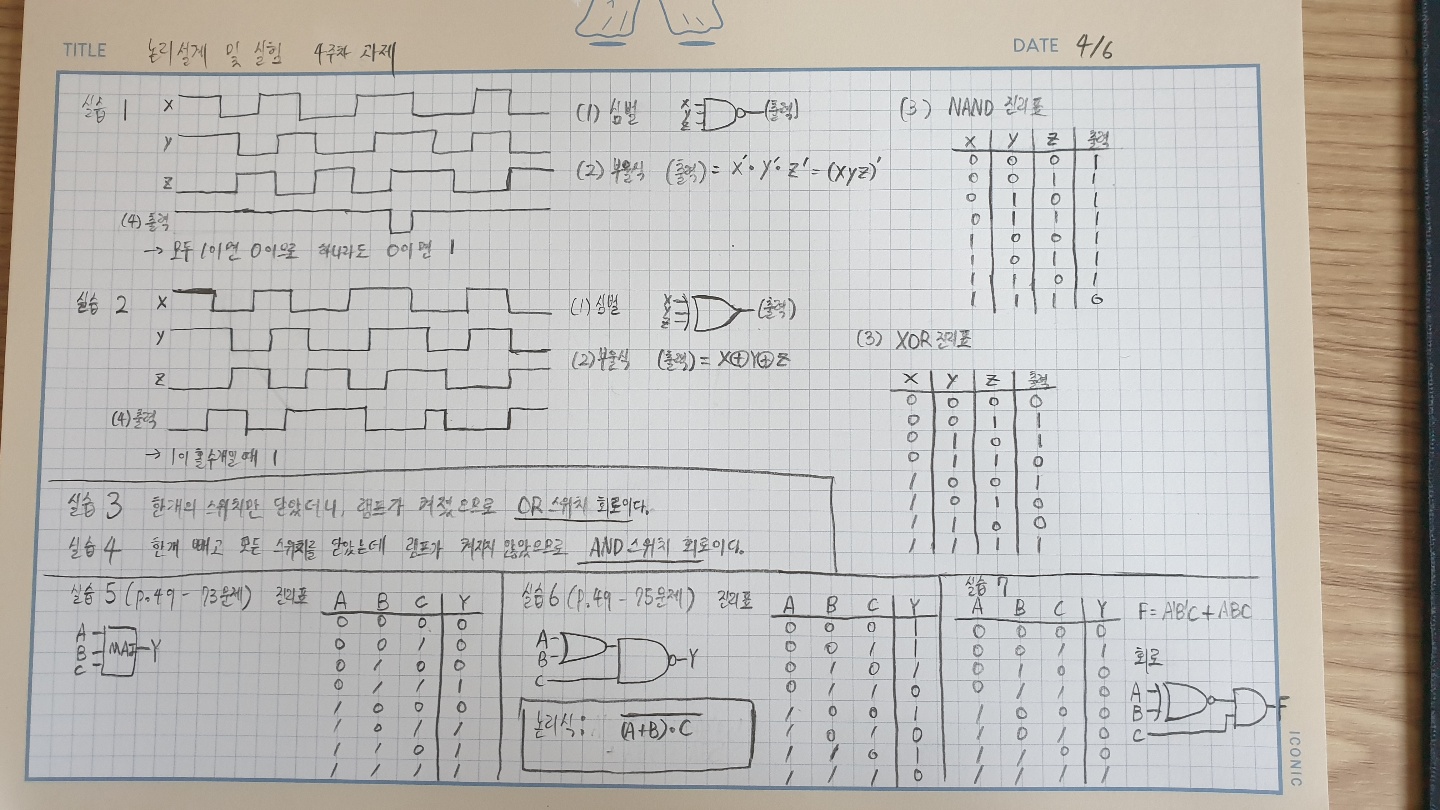 TITLE 논리설계 및 실험 4주차 과제
DATE 4/6
실습 1
X
Y
Z
(4) 출력
→ 모두 1이면 0이으로 하나라도 0이면 1
(1) 심벌 X Y Z (출력)
(2) 부울식 (출력) = X'·Y'·Z' = (XYZ)'
(3) NAND 진리표
X Y Z 출력
0 0 0 1
0 0 1 1
0 1 0 1
0 1 1 1
1 0 0 1
1 0 1 1
1 1 0 1
1 1 1 0
실습 2
X
Y
Z
(4) 출력
→ 1이 홀수개일 때 1
(1) 심벌 X Y Z (출력)
(2) 부울식 (출력) = X⊕Y⊕Z
(3) XOR 진리표
X Y Z 출력
0 0 0 0
0 0 1 1
0 1 0 1
0 1 1 0
1 0 0 1
1 0 1 0
1 1 0 0
1 1 1 1
실습 3 한개의 스위치만 닫았더니, 램프가 켜졌으므로 OR 스위치 회로이다.
실습 4 한개 빼고 모든 스위치를 닫았는데 램프가 켜지지 않았으므로 AND 스위치 회로이다.
실습 5 (p.49 - 73문제) 진리표
A
B MAJ Y
C
A B C Y
0 0 0 0
0 0 1 0
0 1 0 0
0 1 1 1
1 0 0 0
1 0 1 1
1 1 0 1
1 1 1 1
실습 6 (p.49 - 75문제) 진리표
A
B Y
C
논리식: (A+B)·C
A B C Y
0 0 0 1
0 0 1 1
0 1 0 1
0 1 1 0
1 0 0 1
1 0 1 0
1 1 0 1
1 1 1 0
실습 7
A B C Y
0 0 0 0
0 0 1 1
0 1 0 0
0 1 1 0
1 0 0 0
1 0 1 0
1 1 0 0
1 1 1 1
F = A'B'C + ABC
회로
A
B F
C
ICONIC